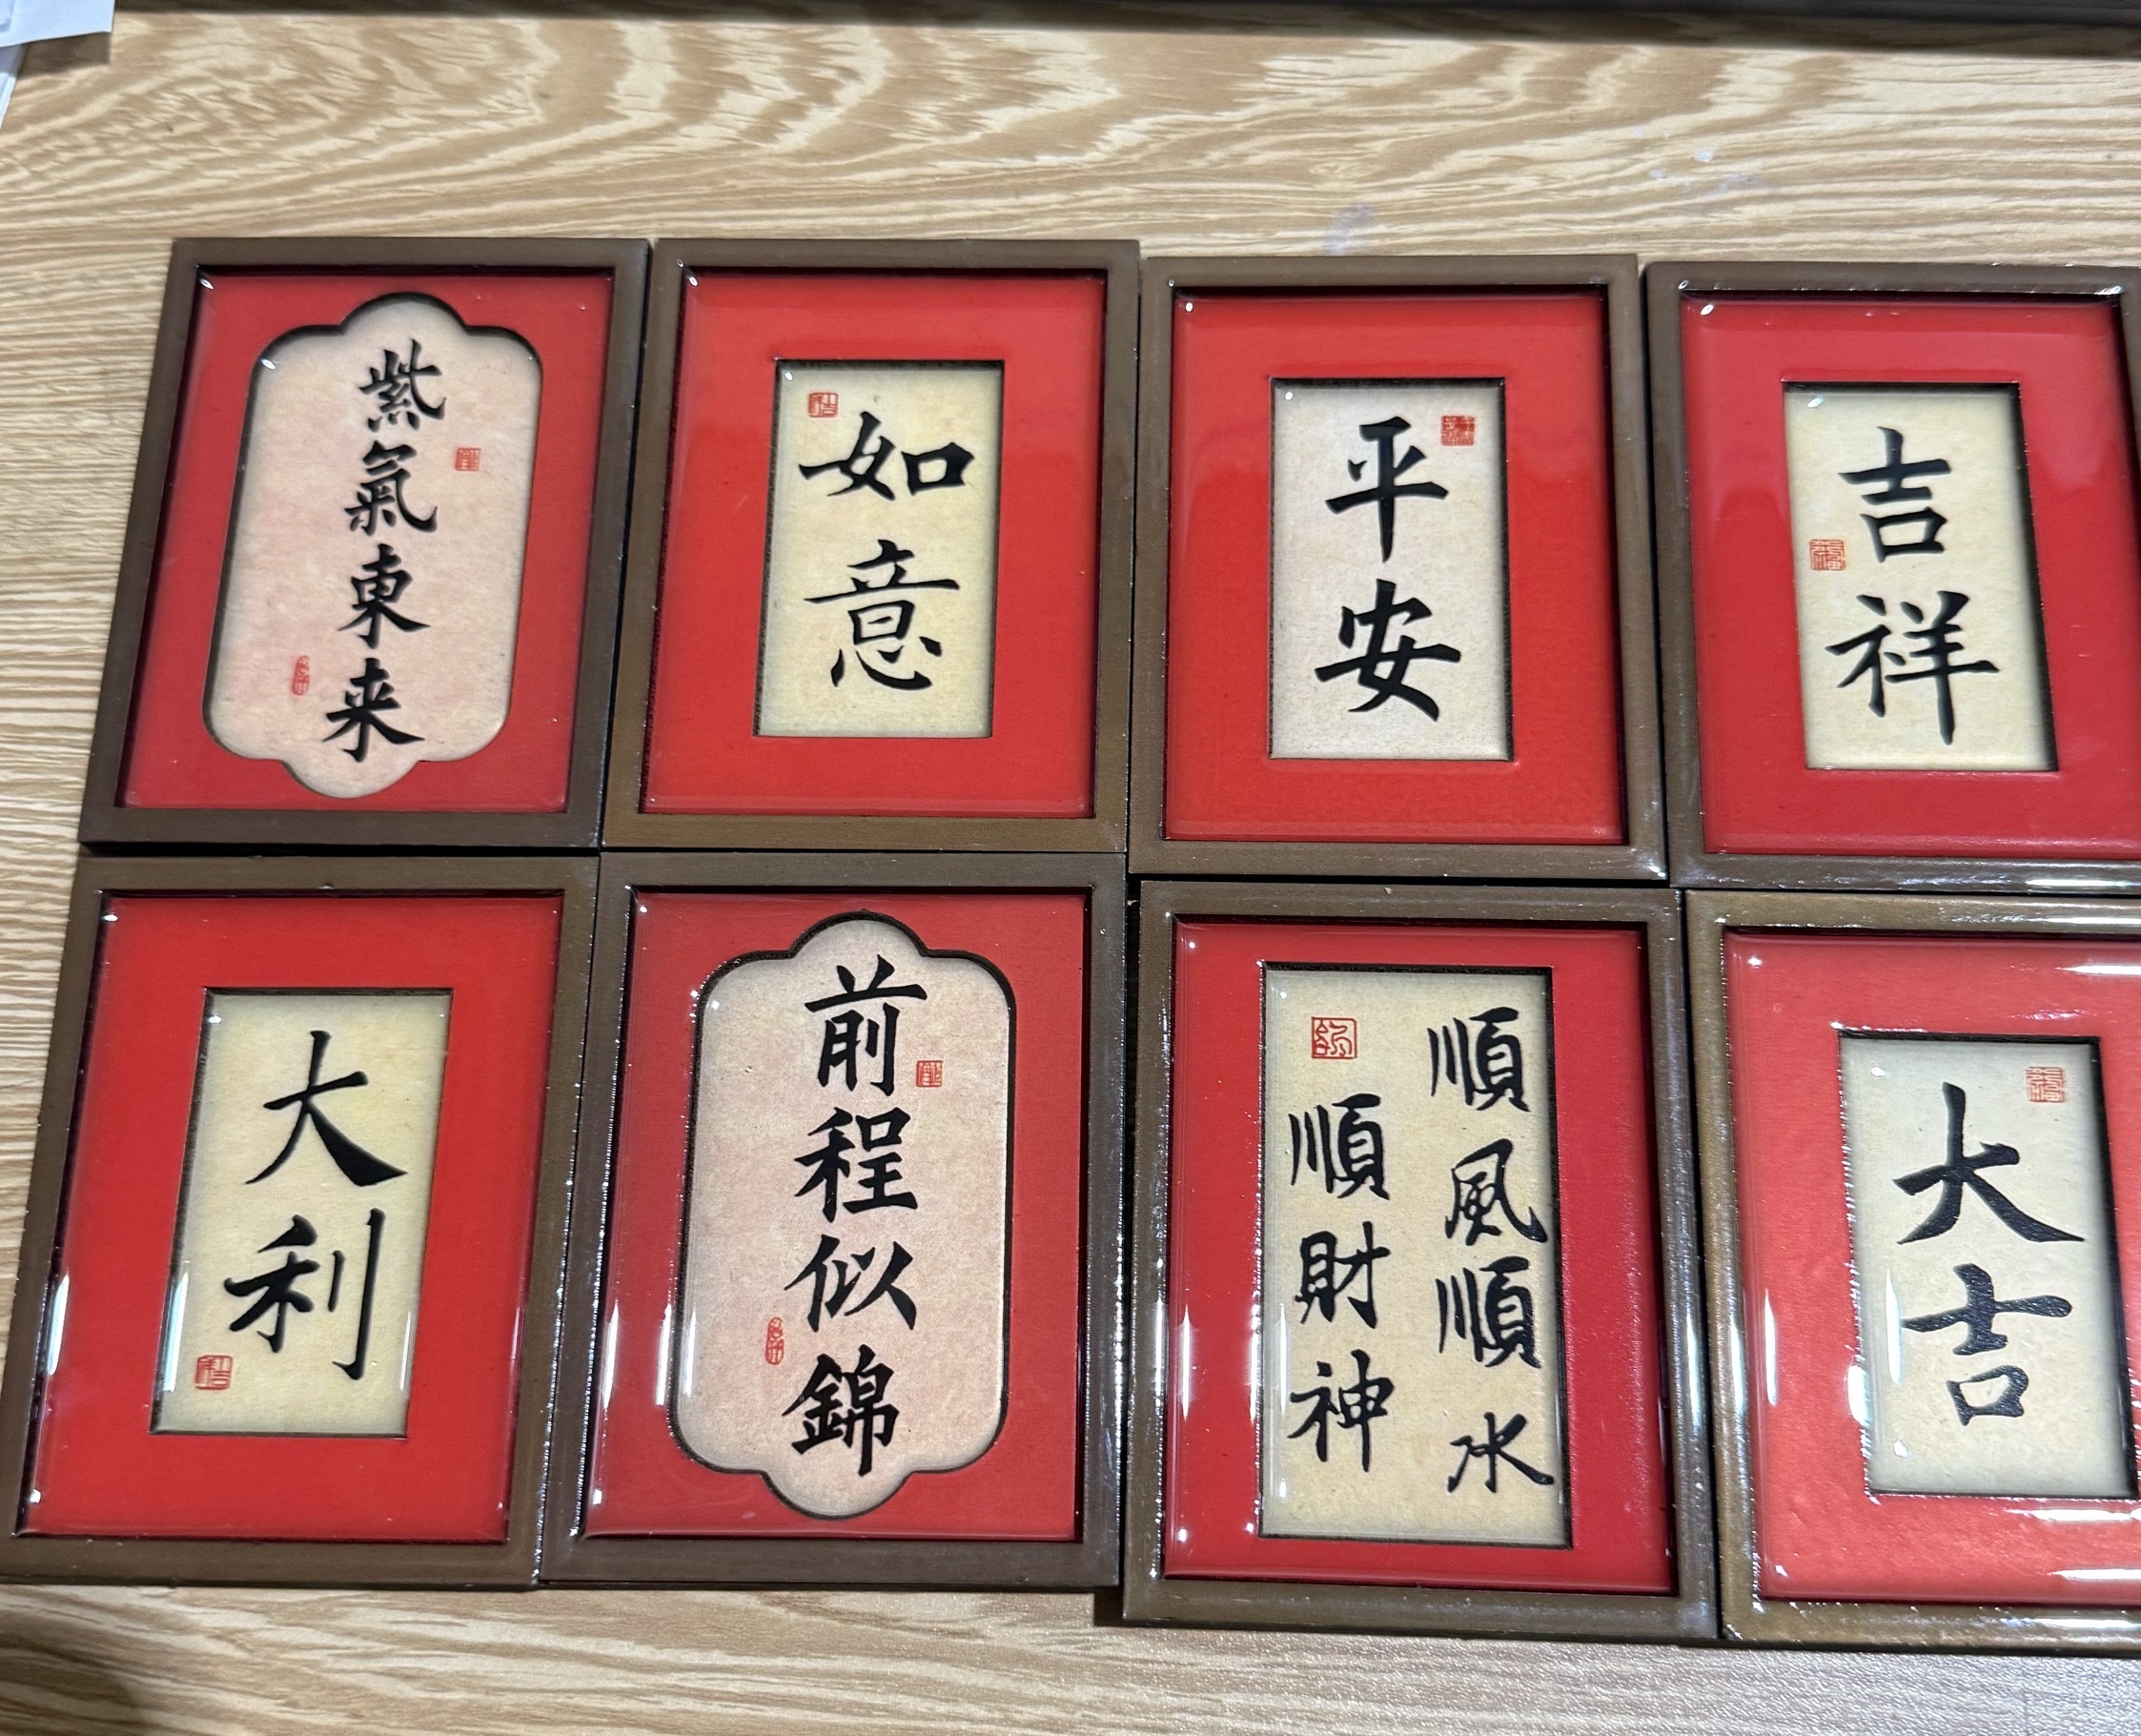 紫氣東来
如意
平安
吉祥
大利
前程似錦
順風順水
順財神
大吉